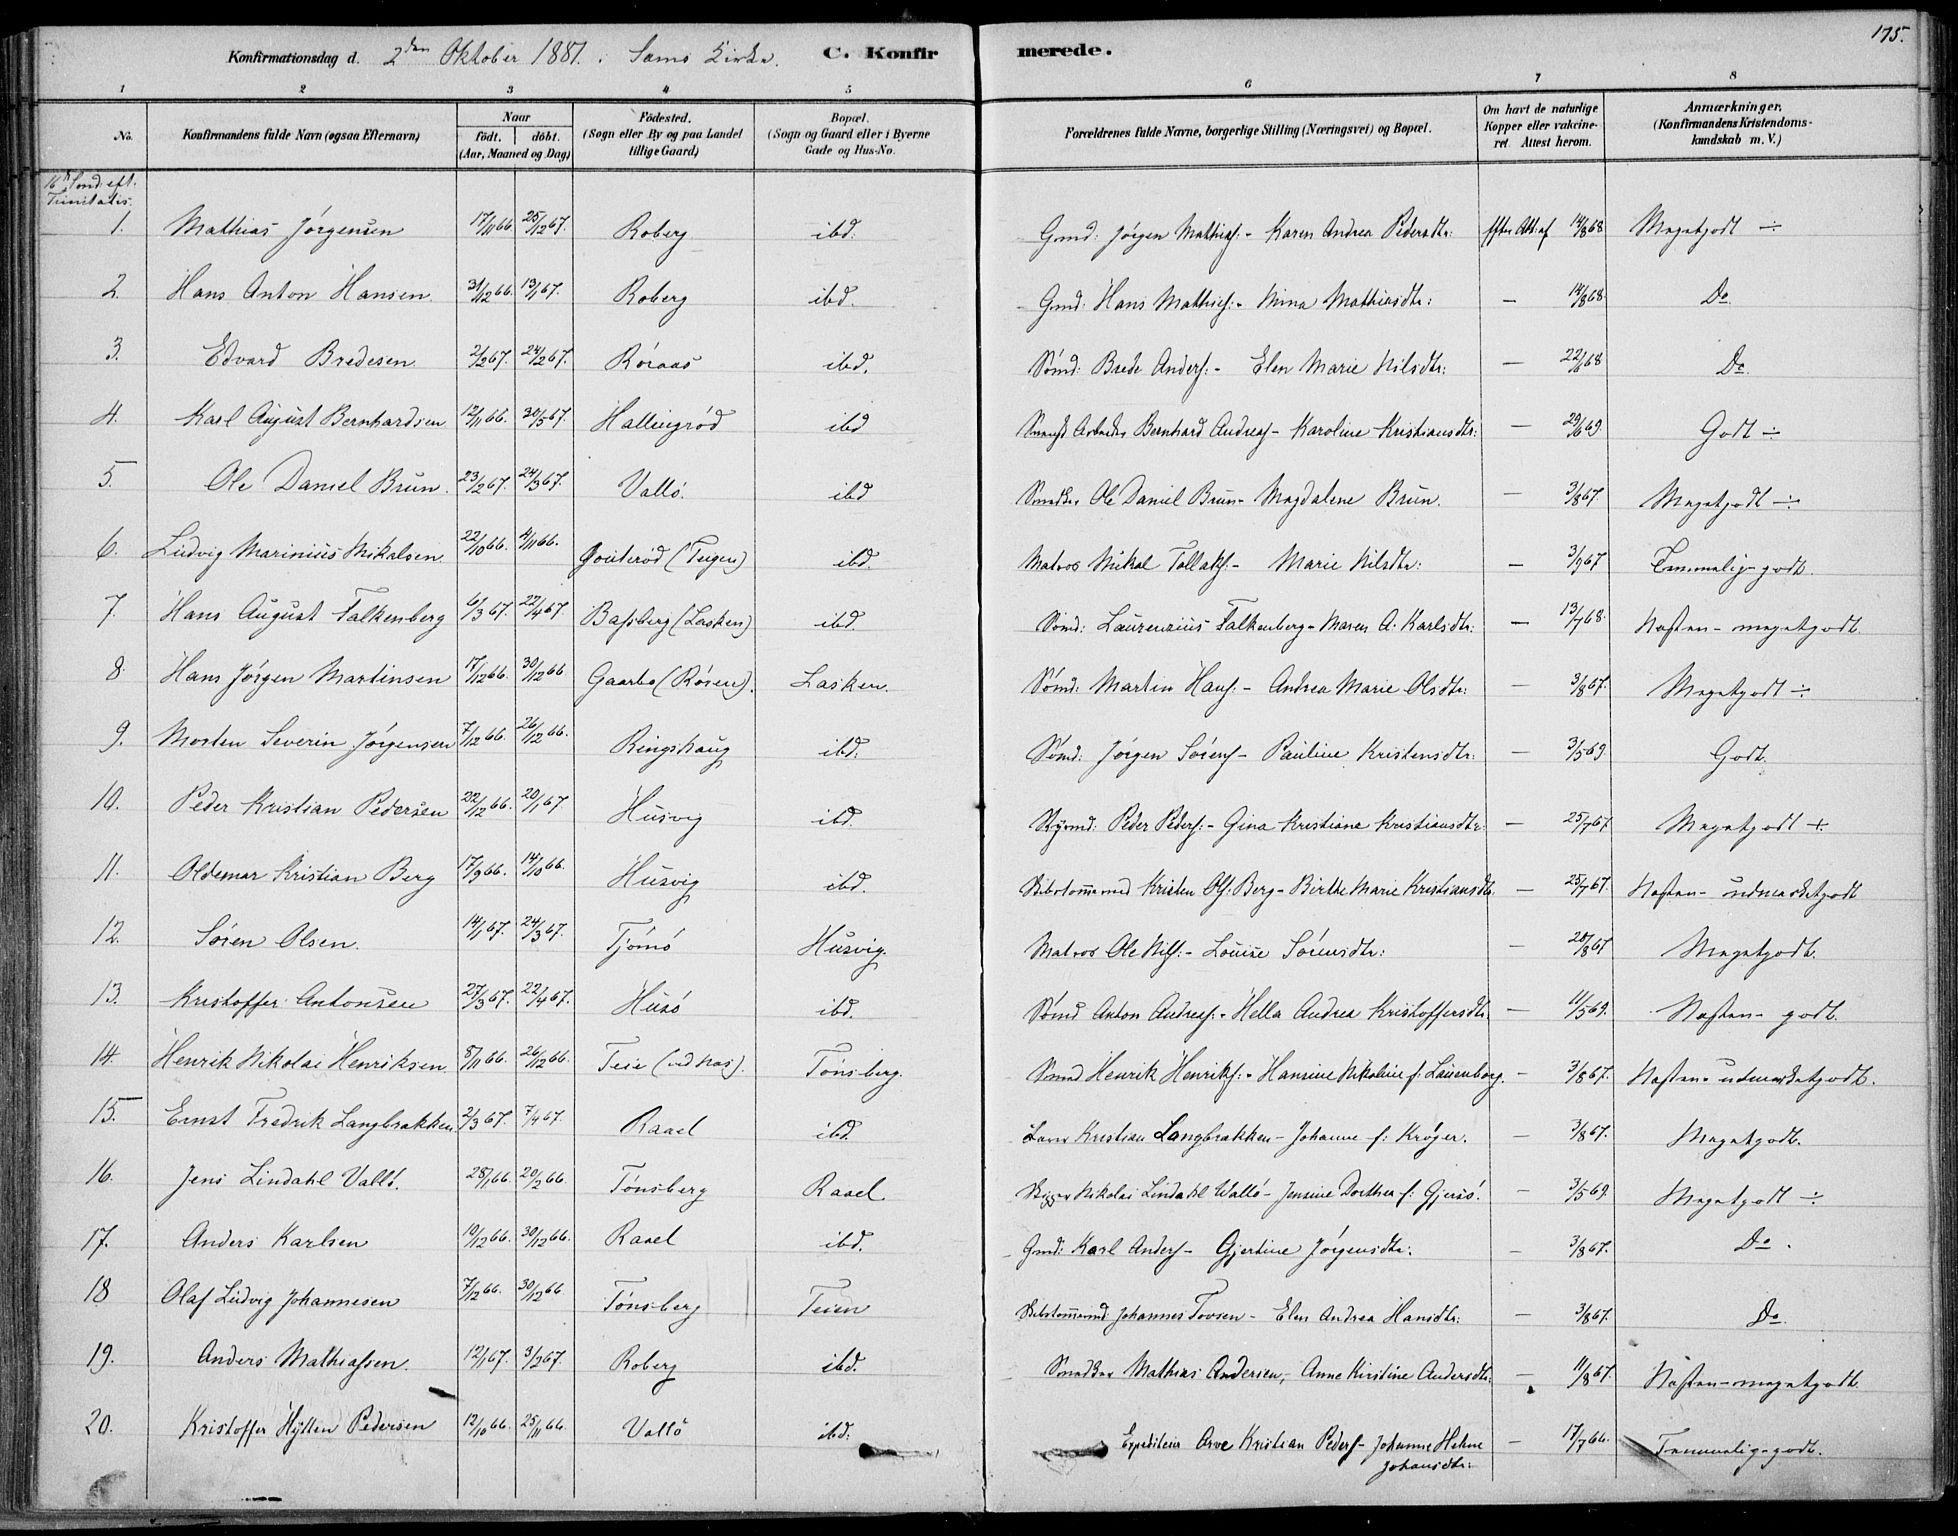 175.
Konfirmationsdag d. 2den Oktober 1881. i Sems Kirke. C. Konfirmerede.
1 2 3 4 5 6 7 8
No. Konfirmandens fulde Navn (ogsaa Efternavn) Naar födt. döbt. (Aar, Maaned og Dag) Födested. (Sogn eller By og paa Landet tillige Gaard) Bopæl. (Sogn og Gaard eller i Byerne Gade og Hus-No. Forældrenes fulde Navne, borgerlige Stilling (Næringsvei) og Bopæl. Om havt de naturlige Kopper eller vakcineret. Attest herom. Anmærkninger. (Konfirmandens Kristendomskundskab m. V.)
16de Sønd. eft. Trinitatis.
1. Mathias Jörgensen 17/11 66 25/12 67. Roberg ibd. Gmd: Jörgen Mathisf:- Karen Andrea Pedersdtr: 14/8 68 Megetgodt ÷
2. Hans Anton Hansen. 31/12 66. 13/1 67. Roberg ibd. Gmd: Hans Mathisf:- Mina Mathisdtr: – 14/8 68. Do.
3. Edvard Bredesen. 2/2 67. 24/2 67. Röraas ibd. Sömd: Brede Andersf:- Elen Marie Nilsdtr: – 22/6 68 Do.
4. Karl August Bernhardsen 12/11 66. 30/5 67. Hallingröd ibd Arbeider Bernhard Andreasf- Karoline Kristiansdtr: – 29/6 69 Godt ÷
5. Ole Daniel Brun. 23/2 67. 24/3 67. Vallö. ibd Snedker Ole Daniel Brun- Magdalene Brun. – 3/8 67. Megetgodt ÷
6. Ludvig Marinius Mikalsen. 22/10 66. 4/11 66. Gouteröd (Teigen) ibd. Matros Mikal Tollaksf:- Marie Nilsdtr: – 3/9 67 Temmelig-godt.
7. Hans August Falkenberg 6/3 67. 22/4 67 Basberg (Lasken) ibd. Sömd: Laurenzius Falkenberg- Maren A. Karlsdtr: – 13/7 68. Næsten- megetgodt.
8. Hans Jörgen Martinsen 17/12 66. 30/12 66 Gaarbo (Rösen). Lasken. Sömd: Martin Hansf:- Andrea Marie Olsdtr: – 3/8 67. Megetgodt ÷
9. Morten Severin Jörgensen 7/12 66. 26/12 66. Ringshaug ibd. Sömd: Jörgen Sörensf- Pauline Kristensdtr: – 3/5 69. Godt.
10. Peder Kristian Pedersen 22/12 66. 20/1 67. Husvig ibd. Peder Pedersf:- Gina Kristiane Kristiansdtr: – 25/7 67 Megetgodt +
11. Oldemar Kristian Berg 17/9 66. 14/10 66. Husvig ibd. Skibstömmermd Kristen Olsf: Berg- Birthe Marie Kristiansdtr. – 25/7 67. Næsten- udmærketgodt
12. Sören Olsen. 14/1 67. 24/3 67. Tjömö Husvig. Matros Ole Nilsf:- Louise Sörensdtr: – 20/8 67 Megetgodt.
13. Kristoffer Antonsen 27/3 67. 22/4 67. Husö ibd. Sömd Anton Andreasf:- Hella Andrea Kristoffersdtr. – 11/5 69. Næsten- godt.
14. Henrik Nikolai Henriksen. 8/11 66. 26/12 66. Teie (ved Næs). Tönsberg. Smed Henrik Henriksf:- Hansine Nikoline f: Lauenborg. – 3/8 67. Næsten- udmærketgodt.
15. Ernst Fredrik Langbrakken 2/3 67. 7/4 67. Raael ibd. Kristian Langbrakken- Johanne f: Kröger. – 3/8 67. Megetgodt.
16. Jens Lindahl Vallö. 28/1 66. 20/2 66. Tönsberg Raael. Nikolai Lindahl Vallö- Jensine Dorthea f: Gjersö. – 3/5 69. Megetgodt ÷
17. Anders Karlsen 10/12 66. 30/12 66. Raael ibd. Gmd: Karl Andersf- Gjertine Jörgensdtr. – 3/8 67. Do.
18 Olaf Ludvig Johannesen 7/12 66. 30/12 66. Tönsberg Teien Skibstömmermd Johannes Tovsen- Elen Andrea Hansdtr: – 3/8 67. Do.
19. Anders Mathiassen. 12/1 67. 3/3 67. Roberg ibd. Snedker Mathias Andersen,- Anne Kirstine Andersdtr: – 11/8 67. Næsten-megetgodt.
20. Kristoffer Hytten Pedersen 12/10 66. 25/11 66. Vallö ibd. Arve Kristian Pedersf- Johanne Helene Johansdtr: – 17/7 66. Temmelig-godt.